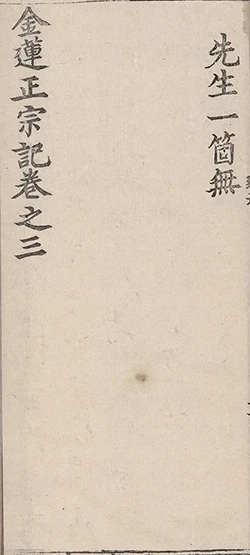 先生一箇無
金蓮正宗記卷之三